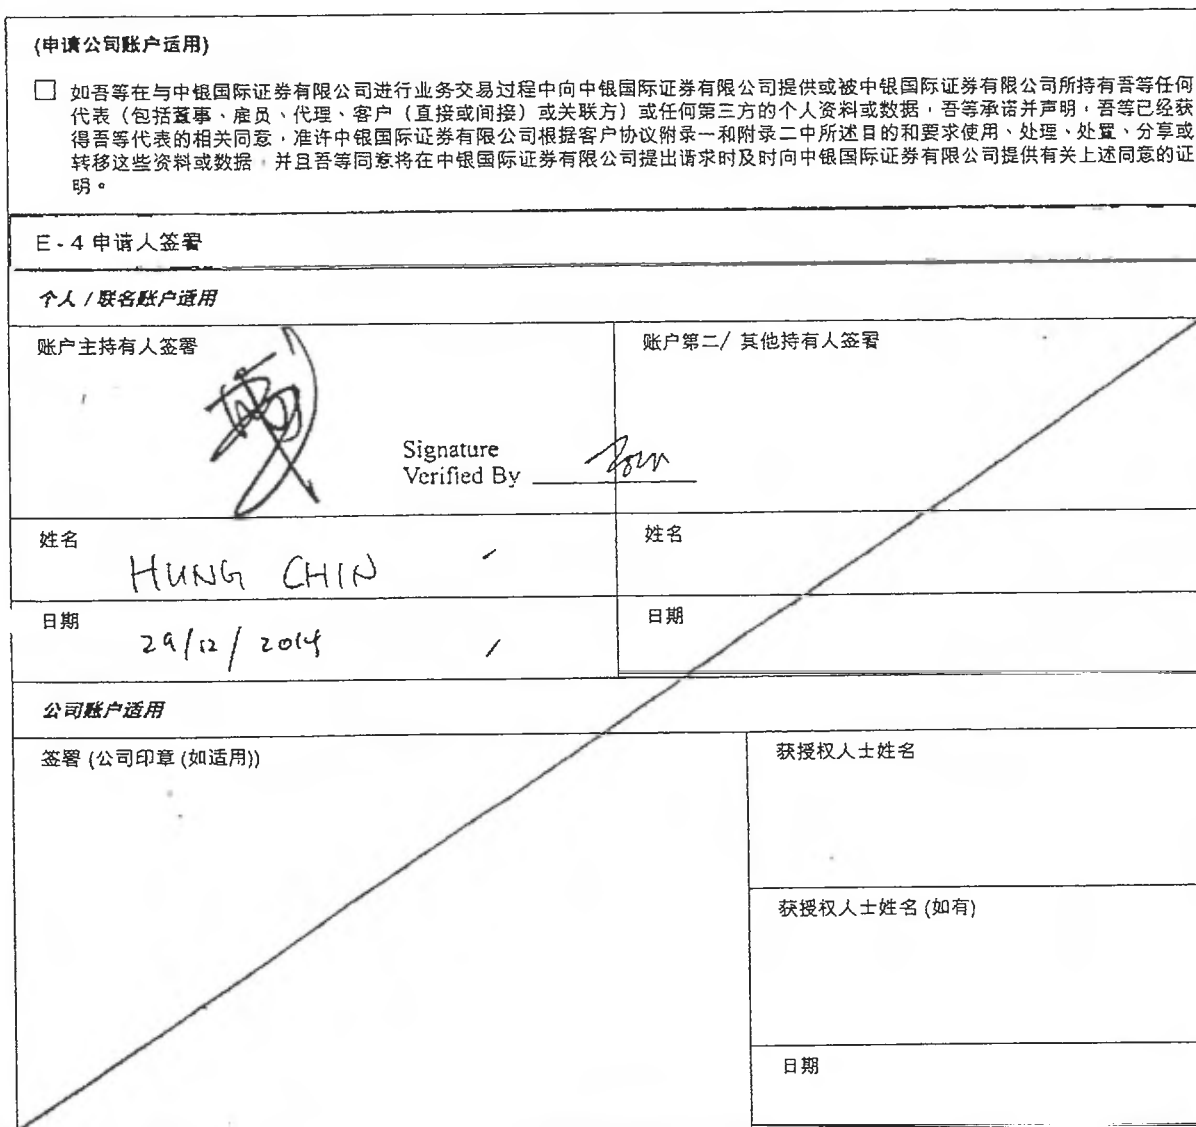 (申请公司账户适用)
如吾等在与中银国际证券有限公司进行业务交易过程中向中银国际证券有限公司提供或被中银国际证券有限公司所持有吾等任何
代表（包括董事、雇员、代理、客户（直接或间接）或关联方）或任何第三方的个人资料或数据，吾等承诺并声明，吾等已经获
得吾等代表的相关同意，准许中银国际证券有限公司根据客户协议附录一和附录二中所述目的和要求使用、处理、处置、分享或
转移这些资料或数据，并且吾等同意将在中银国际证券有限公司提出请求时及时向中银国际证券有限公司提供有关上述同意的证
明。
E - 4 申请人签署
个人 / 联名账户适用
账户主持有人签署
账户第二/ 其他持有人签署
Signature
Verified By
姓名
HUNG CHIN
姓名
日期
29/12/2014
日期
公司账户适用
签署 (公司印章 (如适用))
获授权人士姓名
获授权人士姓名 (如有)
日期